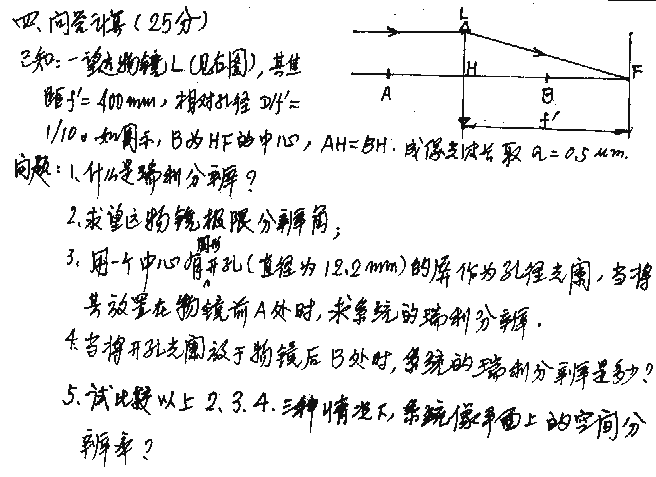 四、问答计算(25分)
已知:一望远物镜L(见右图),其焦
距f′=400mm,相对孔径D/f′=
1/10。如图示,B为HF的中心,AH=BH.成像光波长取λ=0.5μm.
L
A
H
B
F
f′
问题:1.什么是瑞利分辨率?
2.求望远物镜极限分辨角;
3.用一个中心有圆形开孔(直径为12.2mm)的屏作为孔径光阑,当将
其放置在物镜前A处时,求系统的瑞利分辨率.
4.当将开孔光阑放于物镜后B处时,系统的瑞利分辨率是多少?
5.试比较以上2.3.4.三种情况下,系统像平面上的空间分
辨率?